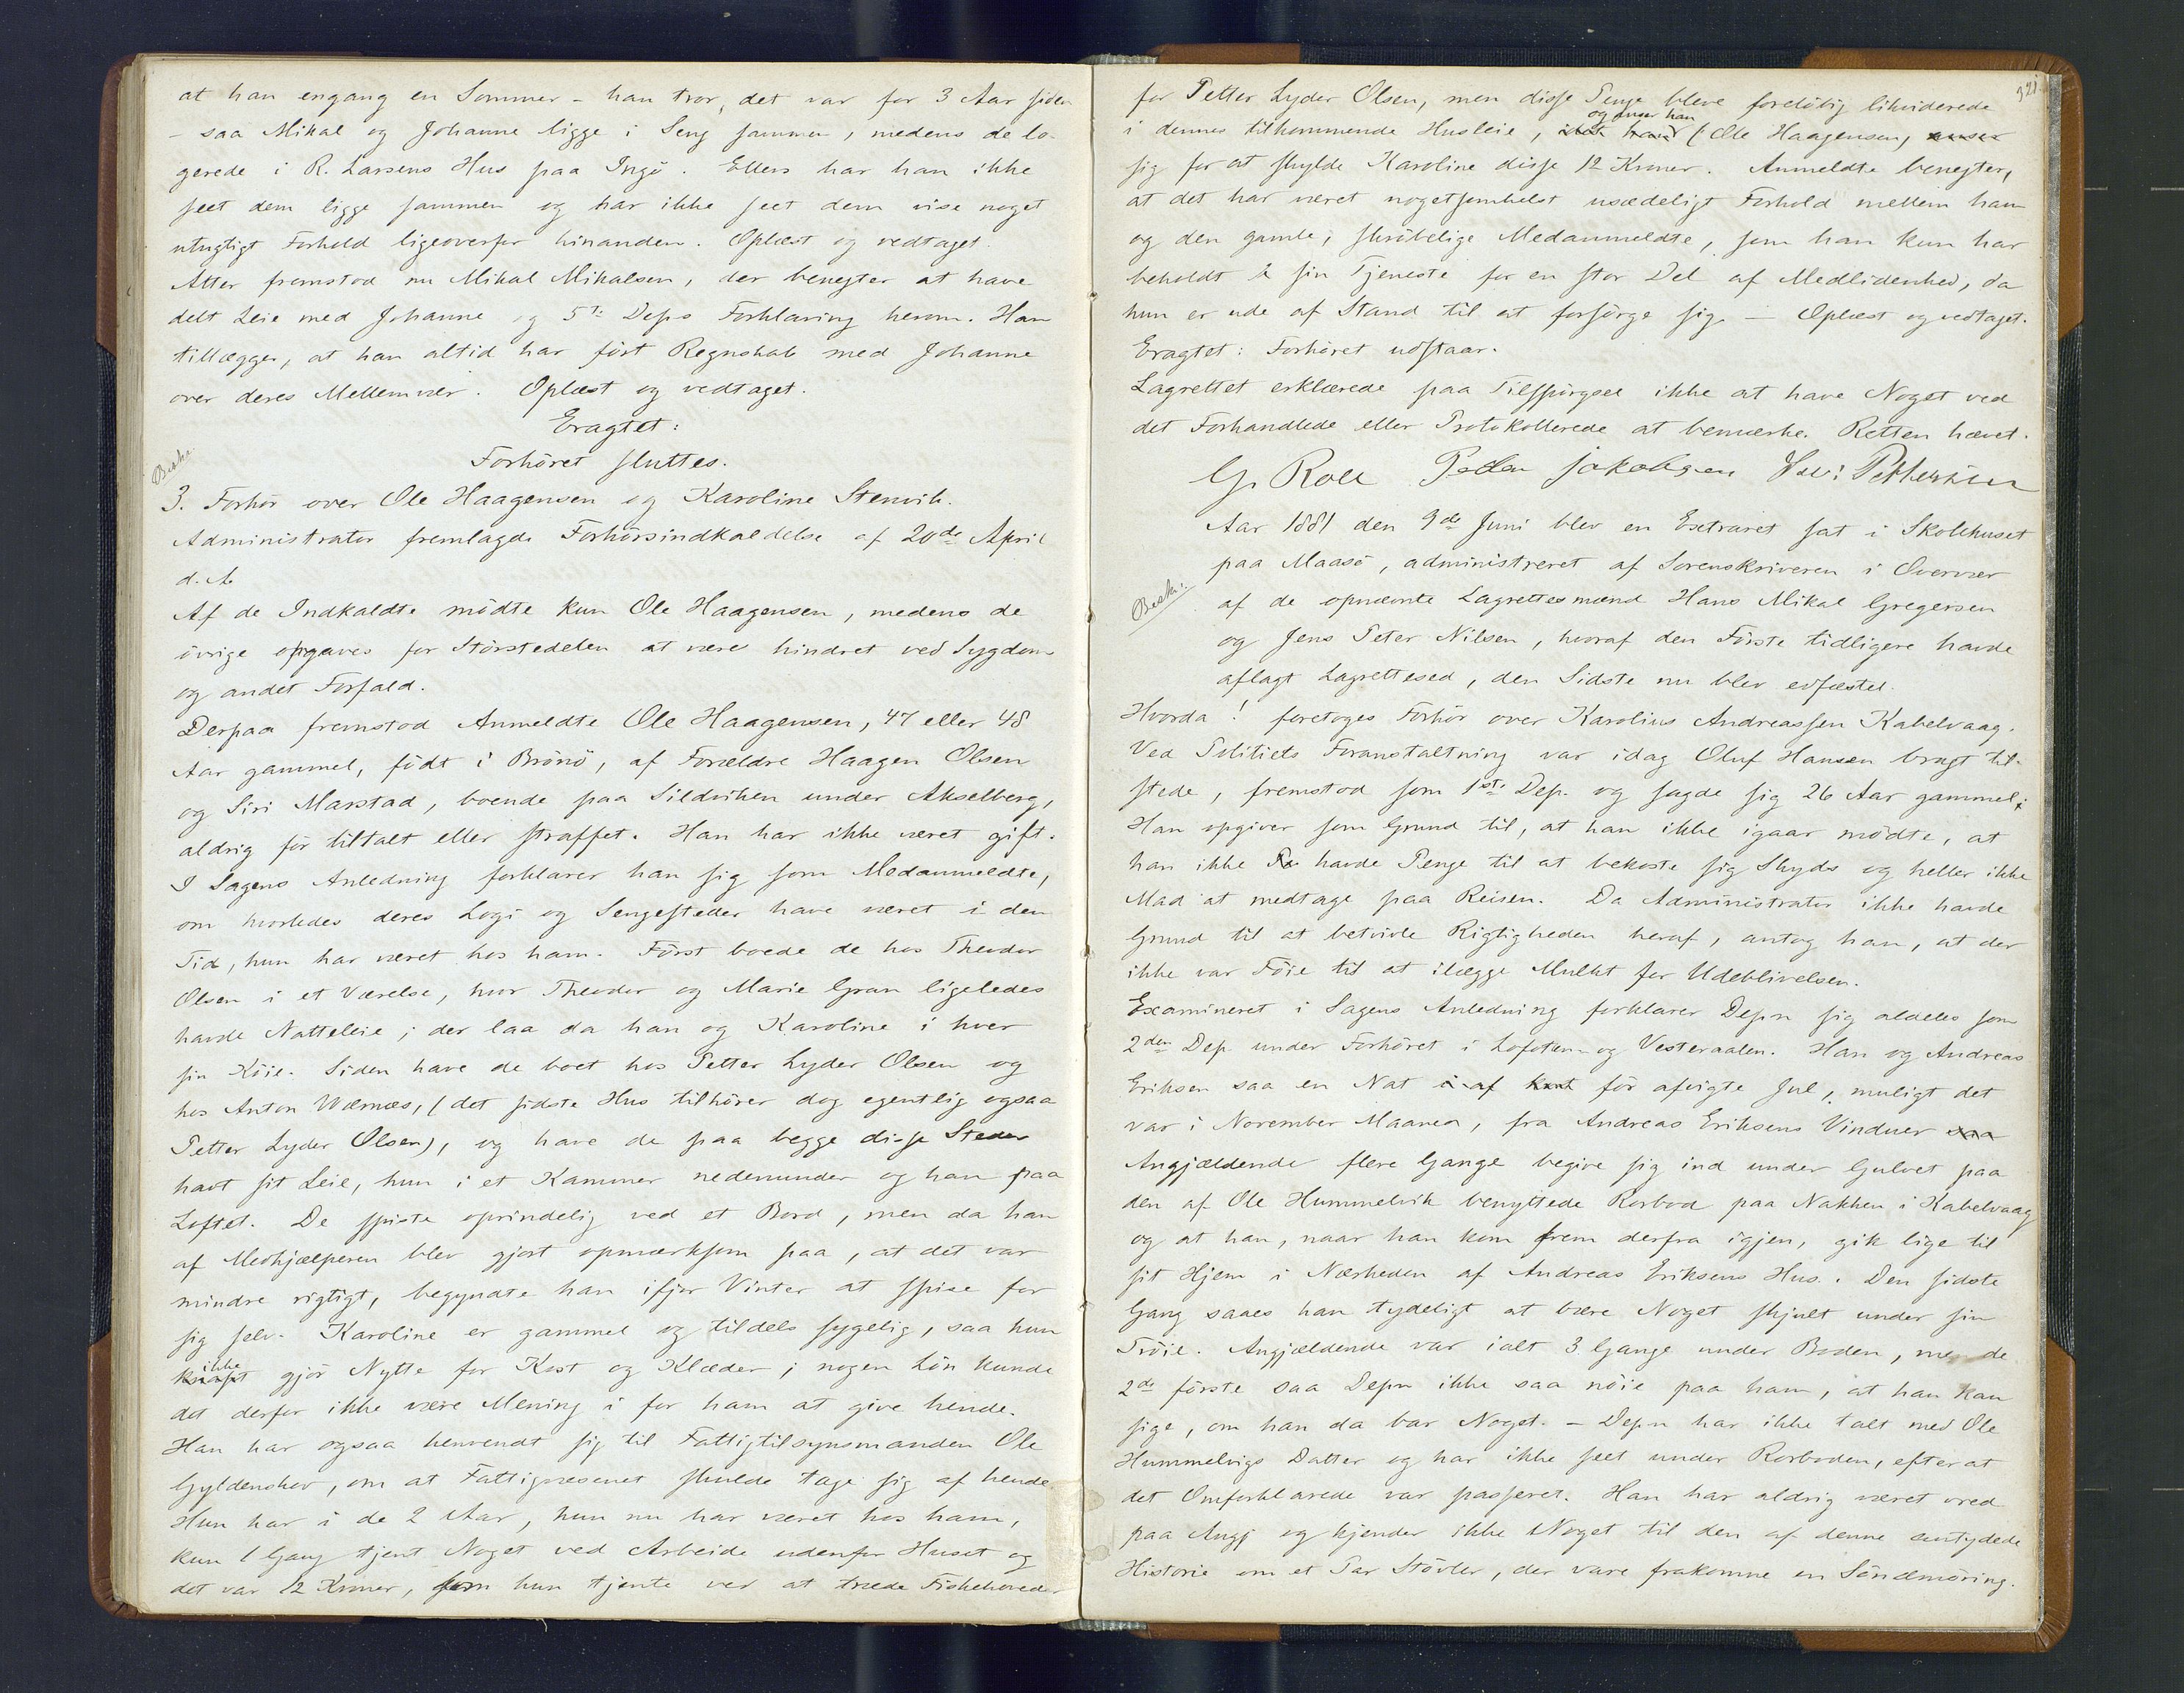 at han engang en Sommer - han tror, det var for 3 Aar siden
- saa Mikal og Johanne ligge i Seng sammen, medens de lo-
gerede i R. Larsens Hus paa Ingö. Ellers har han ikke
seet dem ligge sammen og har ikke seet dem vise noget
utugtigt Forhold ligeoverfor hinanden. Oplæst og vedtaget.
Atter fremstod nu Mikal Mikalsen, der benegter at have
delt Leie med Johanne og 5te Deps Forklaring herom. Han
tillægger, at han altid har fört Regnskab med Johanne
over deres Mellemvær. Oplæst og vedtaget.
Eragtet:
Forhöret sluttes.
Beskr.
3. Forhör over Ole Haagensen og Karoline Stenvik.
Administrator fremlagde Forhörsindkaldelse af 20de April
d. A.
Af de Indkaldte mödte kun Ole Haagensen, medens de
övrige opgaves for Störstedelen at være hindret ved Sygdom
og andet Forfald.
Derpaa fremstod Anmeldte Ole Haagensen, 47 eller 48
Aar gammel, födt i Brönö, af Forældre Haagen Olsen
og Siri Marstad, boende paa Sildviken under Akselberg,
aldrig för tiltalt eller straffet. Han har ikke været gift.
I Sagens Anledning forklarer han sig som Medanmeldte,
om hvorledes deres Logi og Sengesteder have været i den
Tid, hun har været hos ham. Först boede de hos Theodor
Olsen i et Værelse, hvor Theodor og Marie Gran ligeledes
havde Natteleie; der laa da han og Karoline i hver
sin Köie. Siden have de boet hos Petter Lyder Olsen og
hos Anton Wærnæs, (det sidste Hus tilhörer dog egentlig ogsaa
Petter Lyder Olsen), og have de paa begge disse Steder
havt sit Leie, hun i et Kammer nedenunder og han paa
Loftet. De spiste oprindelig ved et Bord, men da han
af Medhjælperen blev gjort opmærksom paa, at det var
mindre rigtigt, begyndte han ifjor Vinter at spise for
sig selv. Karoline er gammel og tildels sygelig, saa hun
ikke
knapt gjör Nytte for Kost og Klæder; nogen Lön kunde
det derfor ikke være Mening i for ham at give hende.
Han har ogsaa henvendt sig til Fattigtilsynsmanden Ole
Gyldenskov, om at Fattigvæsenet skulde tage sig af hende.
Hun har i de 2 Aar, hun nu har været hos ham,
kun 1 Gang tjent Noget ved Arbeide udenfor Huset og
det var 12 Kroner, som hun tjente ved at træde Fiskehoveder
321
for Petter Lyder Olsen, men disse Penge bleve foreløbig likviderede
og anser han
i dennes tilkommende Husleie, idet han (Ole Haagensen) anser
sig for at skylde Karoline disse 12 Kroner. Anmeldte benegter,
at det har været nogetsomhelst usædeligt Forhold mellem ham
og den gamle, skröbelige Medanmeldte, som han kun har
beholdt i sin Tjeneste for en stor Del af Medlidenhed, da
hun er ude af Stand til at forsörge sig. - Oplæst og vedtaget.
Eragtet: Forhöret udstaar.
Lagrettet erklærede paa Tilspörgsel ikke at have Noget ved
det Forhandlede eller Protokollerede at bemærke. Retten hævet.
G. Roll Peder Jakobsen Pettersen
Aar 1881 den 9de Juni blev en Extraret sat i Skolehuset
paa Maasö, administreret af Sorenskriveren i Overvær
Beskr.
af de opnævnte Lagrettesmænd Hans Mikal Gregersen
og Jens Peter Nilsen, hvoraf den Förste tidligere havde
aflagt Lagretteseed, den Sidste nu blev edfæstet.
Hvorda! foretoges Forhör over Karolius Andreassen Kabelvaag.
Ved Politiets Foranstaltning var idag Oluf Hansen bragt til-
stede, fremstod som 1ste Dep. og sagde sig 26 Aar gammel;
Han opgiver som Grund til, at han ikke igaar mödte, at
han ikke havde Penge til at bekoste sig Skyds og heller ikke
Mad at medtage paa Reisen. Da Administrator ikke havde
Grund til at betvivle Rigtigheden heraf, antog han, at der
ikke var Föie til at ilægge Mulkt for Udeblivelsen.
Examineret i Sagens Anledning forklarer Depn sig aldeles som
2den Dep under Forhöret i Lofoten og Vesteraalen. Han og Andreas
Eriksen saa en Nat i af för afvigte Jul, muligt det
var i November Maaned, fra Andreas Eriksens Vinduer saa
Angjældende flere Gange begive sig ind under Gulvet paa
den af Ole Hummelvik benyttede Rorbod paa Nakken i Kabelvaag
og at han, naar han kom frem derfra igjen, gik lige til
sit Hjem i Nærheden af Andreas Eriksens Hus. Den sidste
Gang saaes han tydeligt at bære Noget skjult under sin
Tröie. Angjældende var ialt 3 Gange under Boden, men de
2de förste saa Depn ikke saa nöie paa ham, at han kan
sige, om han da bar Noget. - Depn har ikke talt med Ole
Hummelvigs Datter og har ikke seet under Rorboden, efter at
det Omforklarede var passeret. Han har aldrig været vred
paa Angj og kjender ikke Noget til den af denne antydede
Historie om et Par Stövler, der vare frakomne en Söndmöring.